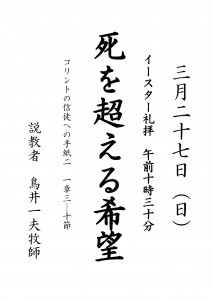 三月二十七日（日）
イースター礼拝　午前十時三十分
死を超える希望
コリントの信徒への手紙二　一章三―十節
説教者　鳥井一夫牧師